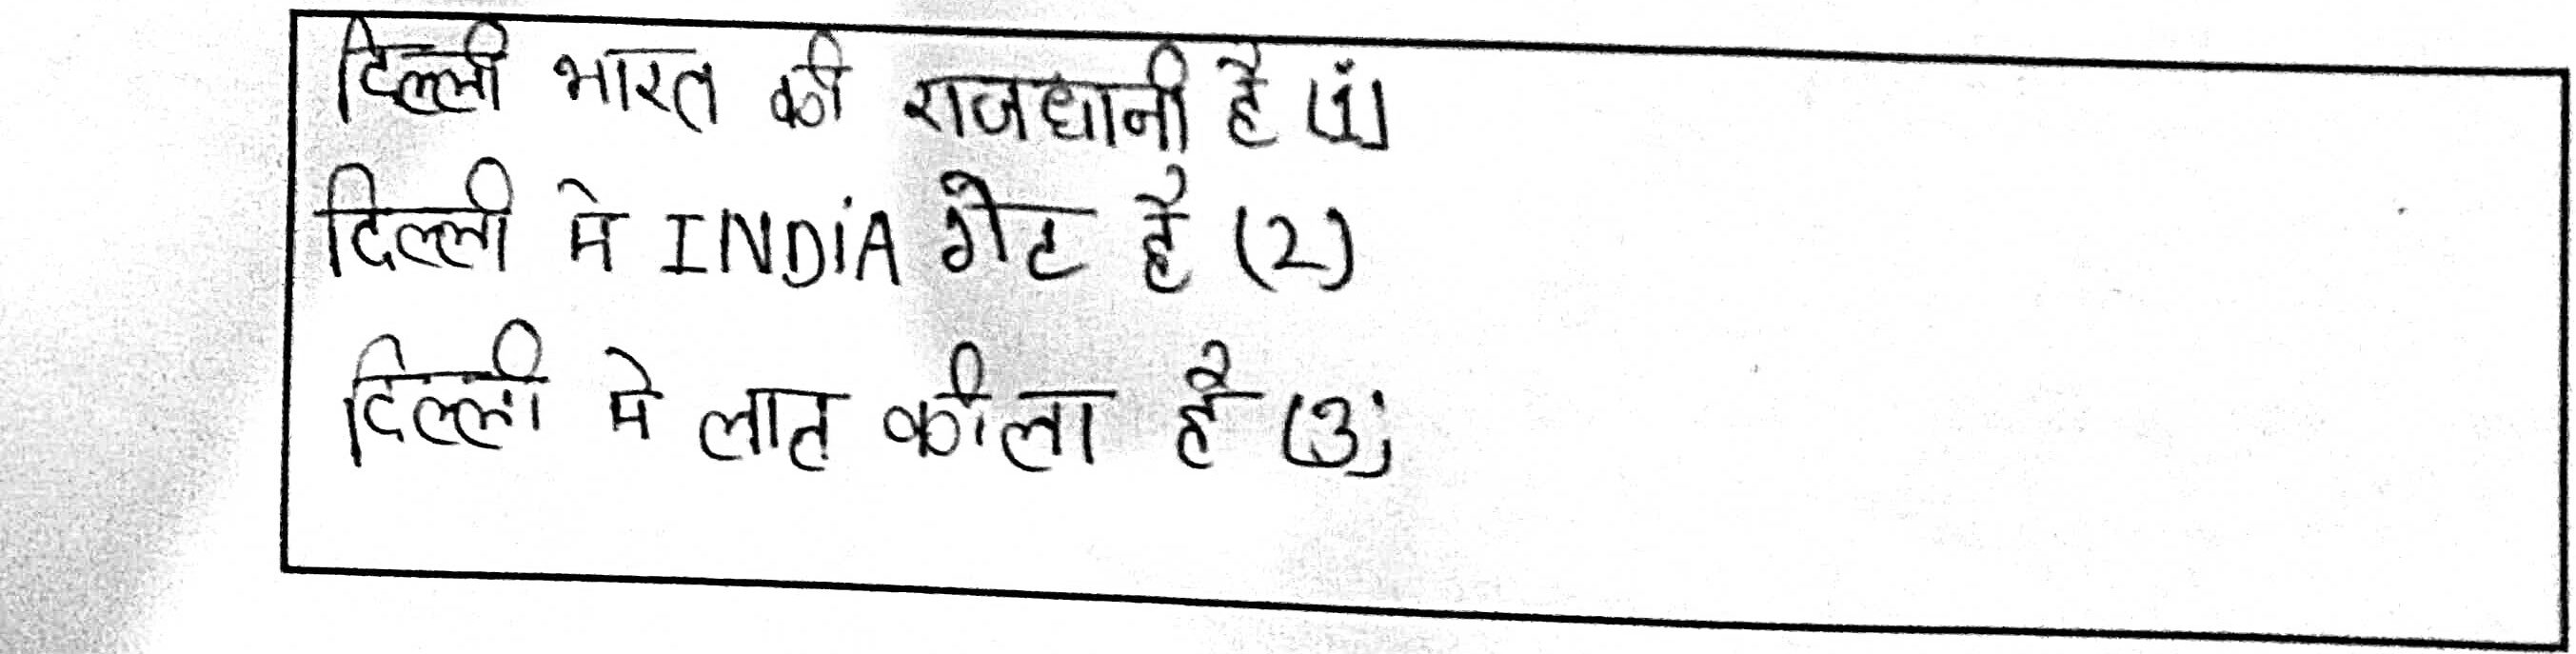 दिल्ली भारत की राजधानी है (1)
दिल्ली मे INDiA गेट है (2)
दिल्ली मे लाल कीला है (3)